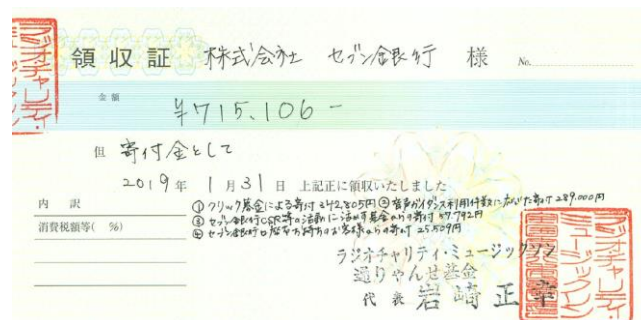 領収証 株式会社 セブン銀行 様 No.
金額 ¥715,106-
但 寄付金として
2019年 1月31日 上記正に領収いたしました
内訳
消費税額等( %)
① クリック募金による寄付 342,805円 ② 音声ガイダンス利用件数に応じた寄付 289,000円
③ セブン銀行CSR等の活動に活かす基金からの寄付 57,792円
④ セブン銀行口座をお持ちのお客様からの寄付 25,509円
ラジオチャリティ・ミュージックソン
通りゃんせ基金
代表 岩崎正幸